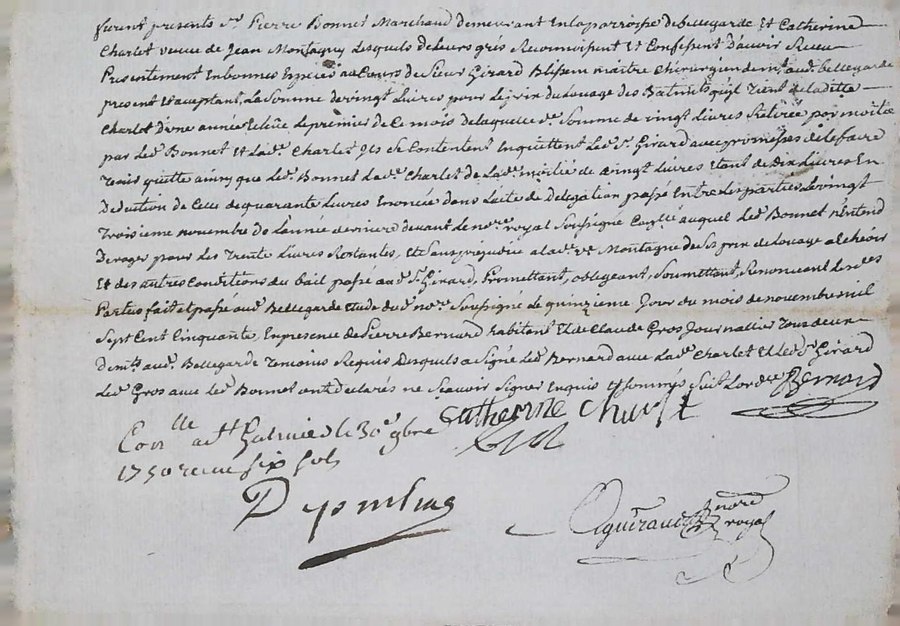 furent presents Sr. Pierre Bonnet Marchand demeurant en la parroisse de Bellegarde Et Catherine
Charlet veuve de Jean Montagny Lesquels de leurs grés Reconnoissent Et Confessent D'avoir Receu
Presentement En bonnes Especes au Cours de Sieur Girard maitre Chirurgien demt. aud. bellegarde
present Et acceptant, La Somme de vingt Livres pour Le prix du Louage des Batiments qu'il Tient de ladite
Charlet d'une année Echüe Le premier de Ce mois de laquelle de. Somme de vingt Livres Retirée par moitié
par Led. Bonnet Et Lad. Charlet, ils se Contentent En quittent Led. Sr. Girard avec promesses de le faire
Tenir quitte ainsy que Led. Bonnet Lad. Charlet de Lad. moitié de vingt Livres Etant de Dix Livres En
Deduction de Celle de quarante Livres Enoncée dans L'acte de Delegation passé Entre Les parties Le vingt
Troisieme novembre de L'annee derniere devant Le nore. royal Soussigné auquel Led. Bonnet n'entend
Deroger pour Les Trente Livres Restantes, Et Sans prejudice a lad. ve. Montagne de Ses prix de Louage a Echeoir
Et des autres Conditions du bail passé aud. Sr. Girard, Promettant, obligeant, Soumettant, Renonceant Lesd.
Parties fait et passé aud. Bellegarde Etude dud. nore. Soussigné Le quinzieme Jour du mois de novembre mil
Sept Cent Cinquante, En presence de Pierre Bernard habitant Et de Claude Gros Journallier Tous deux
demts. aud. Bellegarde Temoins Requis Desquels a Signé Led. Bernard avec Lad. Charlet Et Led. Sr. Girard
Led. Gros avec Led. Bonnet ont declarés ne Scavoir Signer Enquis Et Sommés Suiv. Lordce. Bernard
Conlle a St Galmier le 30e 9bre Catherine Charlet
1750 receu six sols
nore
royal